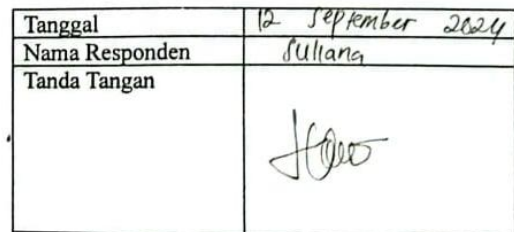 Tanggal 12 September 2024
Nama Responden Suliana
Tanda Tangan